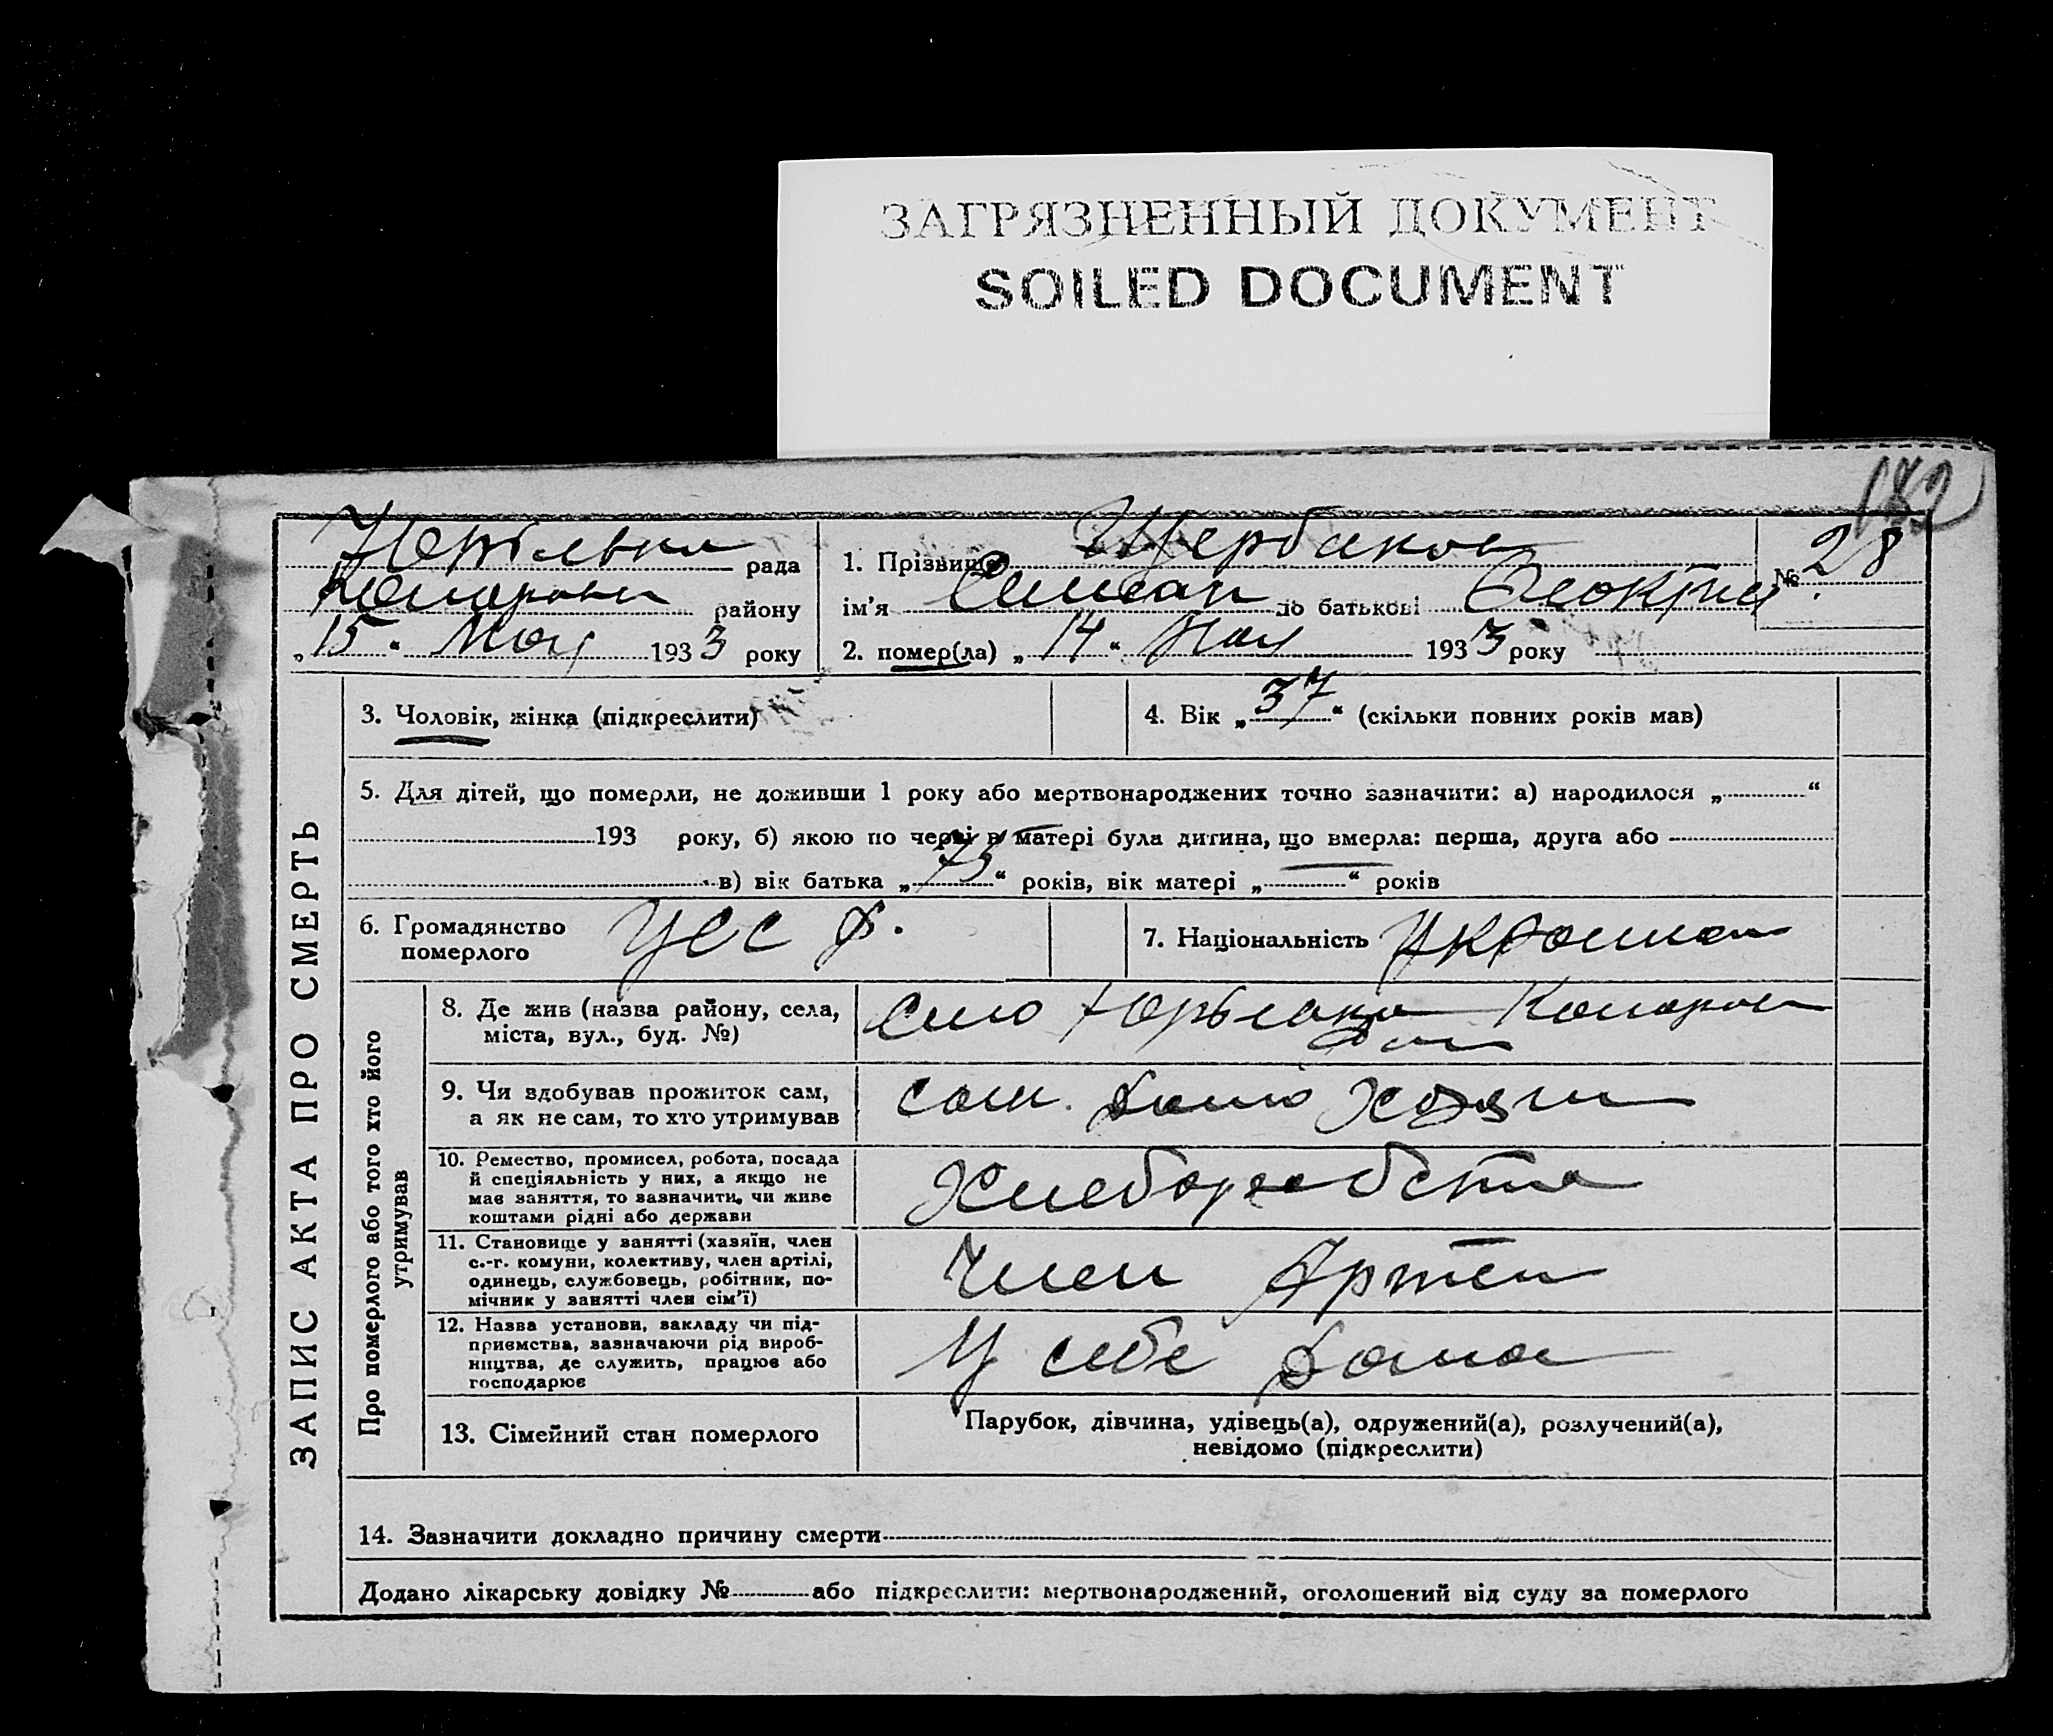 ЗАГРЯЗНЕННЫЙ ДОКУМЕНТ
SOILED DOCUMENT
182
рада
району
„15“ Мая 1933 року
1. Прізвище Щербаков
№ 28
ім’я по батькові
2. помер(ла) „14“ Мая 1933 року
ЗАПИС АКТА ПРО СМЕРТЬ
3. Чоловік, жінка (підкреслити)
4. Вік „37“ (скільки повних років мав)
5. Для дітей, що померли, не доживши 1 року або мертвонароджених точно зазначити: а) народилося „ “
193 року, б) якою по черзі в матері була дитина, що вмерла: перша, друга або
в) вік батька „75“ років, вік матері „—“ років
6. Громадянство померлого УССР.
7. Національність
Про померлого або того хто його утримував
8. Де жив (назва району, села,
міста, вул., буд. №)
село
9. Чи здобував прожиток сам,
а як не сам, то хто утримував
сам.
10. Ремество, промисел, робота, посада
й спеціяльність у них, а якщо не
має заняття, то зазначити, чи живе
коштами рідні або держави
11. Становище у занятті (хазяїн, член
с.-г. комуни, колективу, член артілі,
одинець, службовець, робітник, по-
мічник у занятті член сім’ї)
член
12. Назва установи, закладу чи під-
приємства, зазначаючи рід вироб-
ництва, де служить, працює або
господарює
У себе дома
13. Сімейний стан померлого
Парубок, дівчина, удівець(а), одружений(а), розлучений(а),
невідомо (підкреслити)
14. Зазначити докладно причину смерти
Додано лікарську довідку № або підкреслити: мертвонароджений, оголошений від суду за померлого